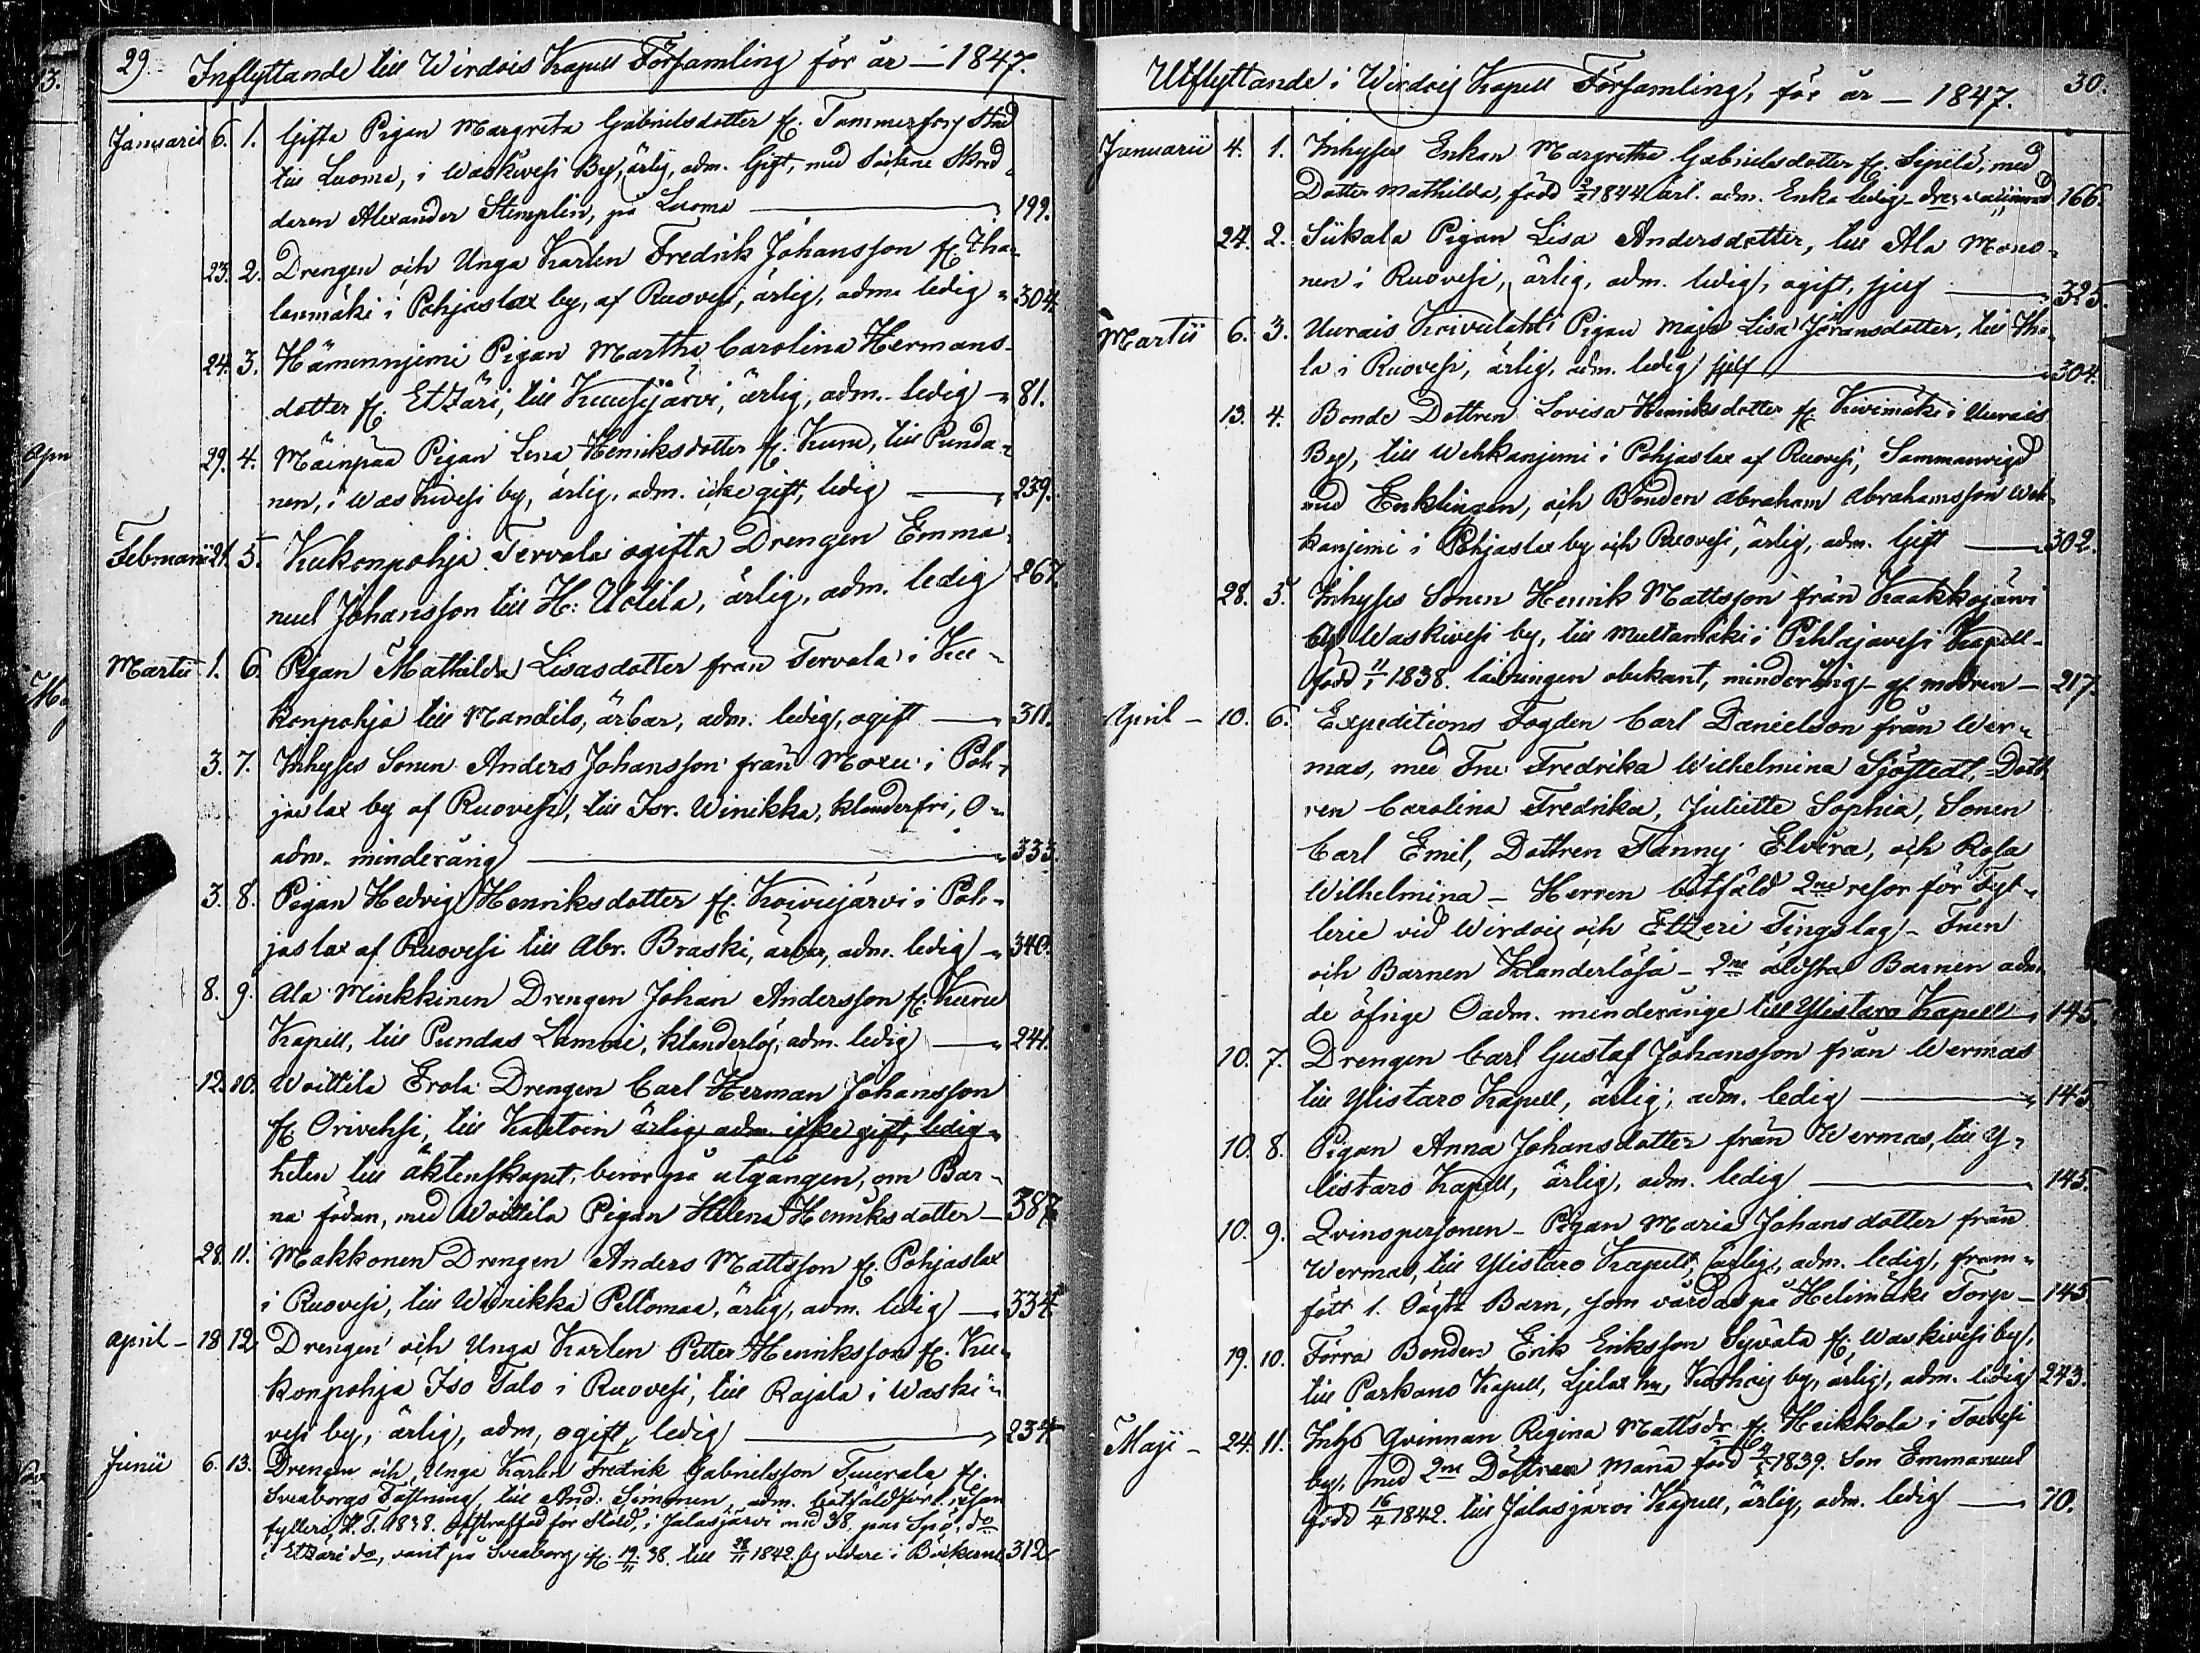 29. Inflyttande till Wirdois Kapell Församling för år - 1847.
Januarii 6. 1. Gifta Pigan Margreta Gabrielsdotter fr. Tammerfors Stad
till Luoma, i Waskivesi By, ärlig, adm. Gift, med Sockne Skred-
daren Alexander Stemplin, på Luoma 199.
23. 2. Drengen och Unga Karlen Fredrik Johansson fr. Iha-
lanmäki i Pohjaslax by, af Ruovesi, ärlig, adm. ledig 304.
24. 3. Hämennjemi Pigan Martha Carolina Hermans-
dotter fr. Etzäri, till Kuusijärvi, ärlig, adm. ledig 81.
29. 4. Mäinpää Pigan Lena Henriksdotter fr. Kuru, till Punda-
nen, i Waskivesi by, ärlig, adm. icke gift, ledig 239.
Februarii 21. 5. Kukonpohja Tervala ogifta Drengen Emma-
nuel Johansson till H: Uotila, ärlig, adm. ledig 267.
Martii 1. 6. Pigan Mathilda Lisasdotter från Tervala i Ku-
konpohja till Mandila, ärbar, adm. ledig, ogift 311.
3. 7. Inhyses Sonen Anders Johansson från Moxu i Poh-
jaslax by af Ruovesi, till Isr. Winikka, klanderfri, O-
adm. minderårig 333.
3. 8. Pigan Hedvig Henriksdotter fr. Koivujärvi i Poh-
jaslax af Ruovesi till Abr. Braski, ärbar, adm. ledig 340.
8. 9. Ala Minkkinen Drengen Johan Andersson fr. Kuru
Kapell, till Pundas Lammi, klanderlös, adm. ledig 241.
12. 10. Woittila Erola Drengen Carl Herman Johansson
fr. Orivehsi, till Kautoin ärlig adm. icke gift, ledig-
heten till äktenskapet, beror på utgången, om Bar-
na födan, med Woittila Pigan Helena Henriksdotter 387.
28. 11. Makkonen Drengen Anders Mattsson fr. Pohjaslax
i Ruovesi, till Winikka Peltomaa, ärlig, adm. ledig 334.
April - 18. 12. Drengen och Unga Karlen Petter Henriksson fr. Ku-
konpohja Iso Talo i Ruovesi, till Rajala i Waski-
vesi by, ärlig, adm, ogift, ledig 234.
Junii 6. 13. Drengen och Unga Karlen Fredrik Gabrielsson Tuurala fr.
Sveaborgs Fästning, till And: Simonen, adm. bötfäld för 1. resan
fylleri, H. T. 1838. afstraffad för Stöld, i Jalasjärvi med 38. par Spö, do
i Etzäri do, varit på Sveaborg fr. 19/11 38. till 28/11 1842. se vidare i Böckerne 312.
Utflyttande i Wirdois Kapell Församling, för år - 1847. 30.
Januarii 4. 1. Inhyses Enkan Margretha Gabrielsdotter fr. Sipilä, med
Dotter Mathilda, född 9/2 1844. ärl. adm. Enka ledig 166.
24. 2. Siikala Pigan Lisa Andersdotter, till Ala Mono-
nen i Ruovesi, ärlig, adm. ledig, ogift, sjelf 325.
Martii 6. 3. Uurais Kivilahti Pigan Maja Lisa Göransdotter, till Iha-
la i Ruovesi, ärlig, adm. ledig sjelf 304.
13. 4. Bonde Dottren Lovisa Henriksdotter fr. Kivimäki i Uurais
By, till Wehkanjemi i Pohjaslax af Ruovesi, Sammanvigd
med Enklingen, och Bonden Abraham Abrahamsson Weh-
kanjemi i Pohjaslax by och Ruovesi, ärlig, adm. Gift 302.
28. 5. Inhyses Sonen Henrik Mattsson från Kaakkojärvi
af Waskivesi by, till Multamäki i Pihlajavesi Kapell-
född 11/1 1838. läsningen obekant, minderårig - gr. modren - 217.
April - 10. 6. Expeditions Fogden Carl Danielson från Wer-
mas, med Fru Fredrika Wilhelmina Sjöstedt, Dott
ren Carolina Fredrika, Juliette Sophia, Sonen
Carl Emil, Dottren Fanny Elvira, och Rosa
Wilhelmina - Herren bötfäld 2ne resor för Fyl-
lerie vid Wirdois och Etzeri Tingslag - Fruen
och Barnen Klanderlösa - 2ne äldsta Barnen adm.
de öfrige Oadm. minderårige till Ylistaro Kapell 145.
10. 7. Drengen Carl Gustaf Johansson från Wermas
till Ylistaro Kapell, ärlig, adm. ledig 145.
10. 8. Pigan Anna Johansdotter från Wermas, till Y-
listaro Kapell, ärlig, adm. ledig 145.
10. 9. Qvinspersonen - Pigan Maria Johansdotter från
Wermas, till Ylistaro Kapell, ärlig, adm. ledig, fram-
fött 1. Oägta Barn, som vårdas på Helimäki Torp - 145.
19. 10. Förra Bonden Erik Eriksson Syväla fr. Waskivesi by,
till Parkano Kapell, Ljelax hn, Koskois by, ärlig, adm. ledig 243.
Maji - 24. 11. Inhs Qvinnan Regina Mattsdr fr. Heikkola i Toivesi
by, med 2ne Döttrar Maria född 1839. Son Emmanuel
född 16/4 1842. till Jalasjärvi Kapell, ärlig, adm. ledig 70.